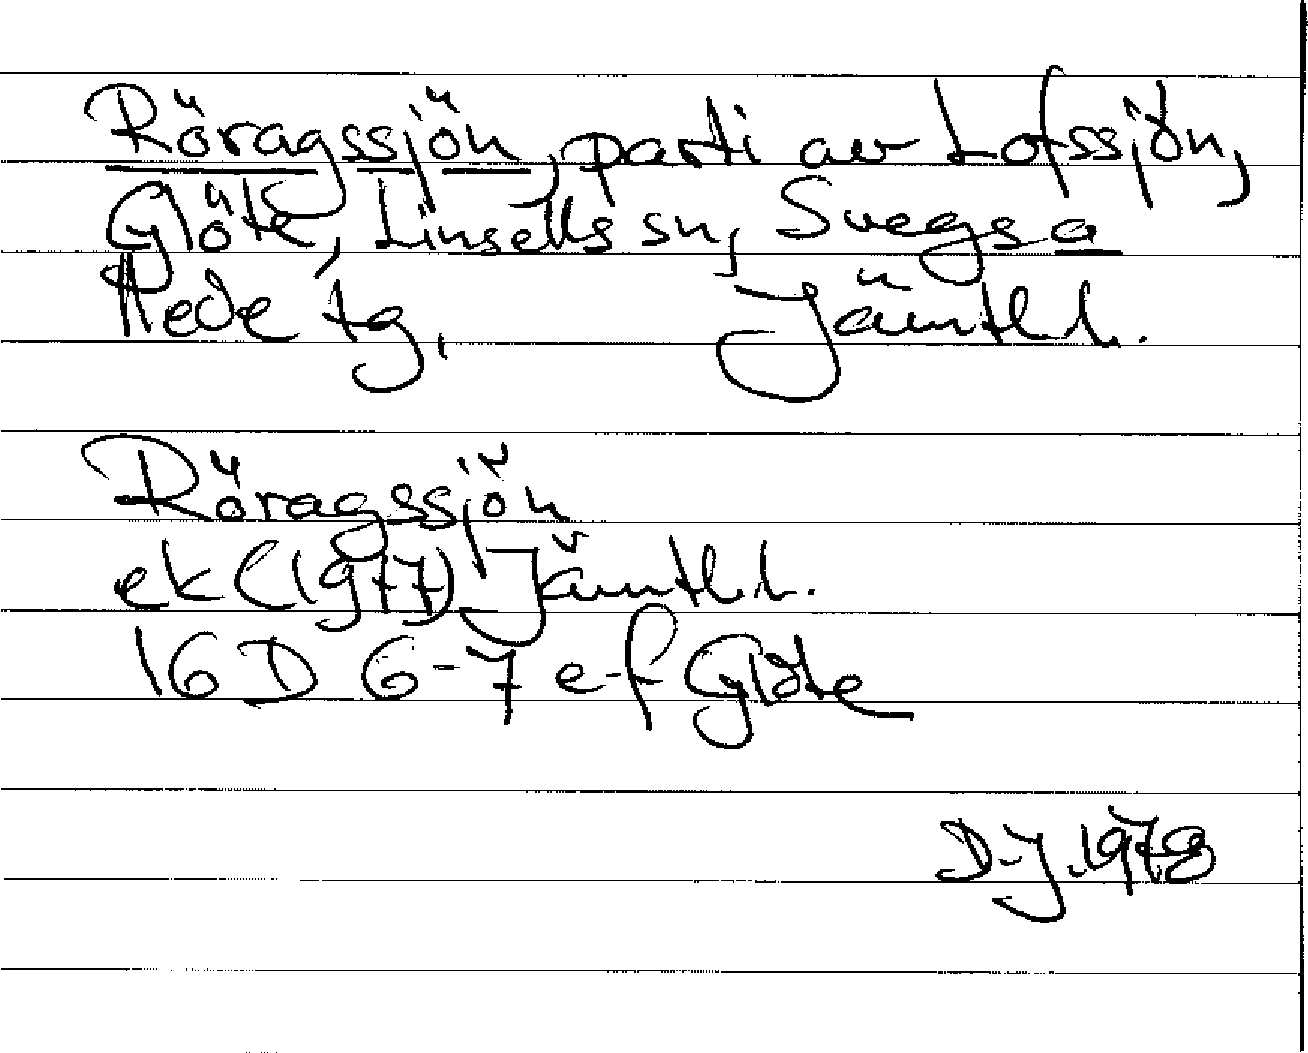 Röragssjön, parti av Lofssjön,
Glöte, Linsells sn, Svegs a
Hede tg, Jämtl. l.
Röragssjön
ek (1977) Jämtl. l.
16 D 6-7 e-f Glöte
D-J. 1978